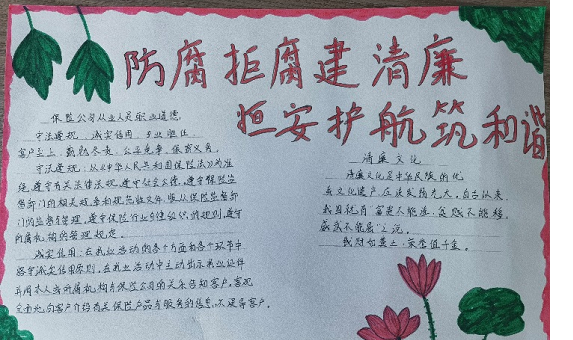 防腐拒腐建清廉
恒安护航筑和谐
保监公司从业人员职业道德
守法遵规 诚实信用 专业胜任
客户至上 勤勉尽责 公平竞争 保守秘密
守法遵规：以《中华人民共和国保险法》为准
绳，遵守有关法律法规，遵守社会公德，遵守保险监
督部门的相关规章和规范性文件，服从保险监督部
门的监督管理，遵守保险行业自律组织的规则，遵守
所属机构的管理规定。
诚实信用：在执业活动的各个方面和各个环节中
恪守诚实信用原则，在执业活动中主动出示执业证件
并将本人与所属机构与保险公司的关系告知客户，客观
全面地向客户介绍有关保险产品与服务的信息，不误导客户。
清廉文化
清廉文化是中华民族的优
秀文化遗产，在这发扬光大，自古以来，
我国就有 富贵不能淫，贫贱不能移，
威武不能屈 之说。
千金。